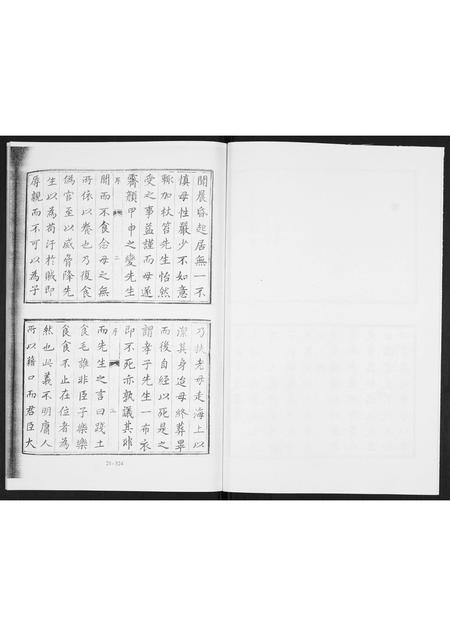 閒晨昏起居無一不
慎母性嚴少不如意
輒加杖笞先生怡然
受之事益謹而母遂
霽顏甲申之變先生
序 二
聞而不食念母之無
所依以養也乃復食
偽官至以威脅降先
生以為苟汙於賊即
辱親而不可以為子
乃扶老母走海上以
潔其身迨母終葬畢
而後自經以死是之
謂孝子先生一布衣
即不死亦孰議其非
序
而先生之言曰踐土
食毛誰非臣子樂樂
食食不止在位者為
然也此義不明庸人
所以藉口而君臣大
21-324